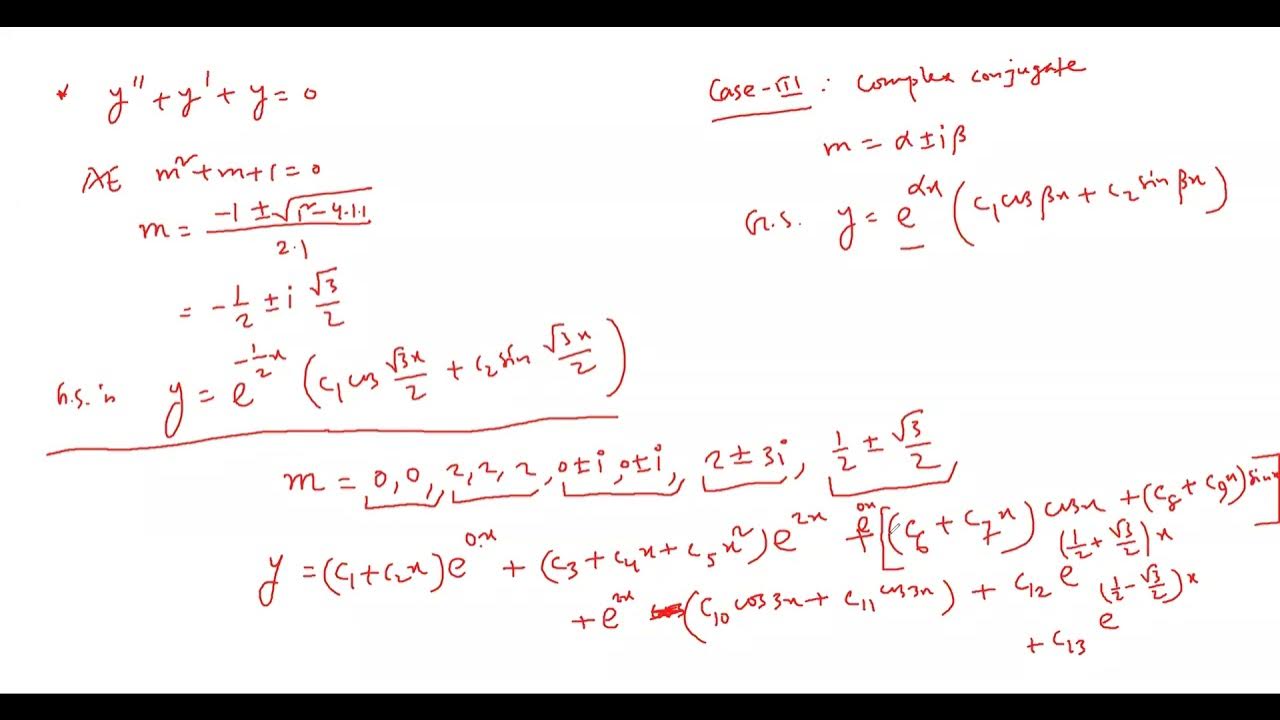 * y'' + y' + y = 0
AE m² + m + 1 = 0
m = (-1 ± √(1² - 4·1·1)) / (2·1)
= -1/2 ± i √3/2
G.S. is y = e^(-1/2 x) (c₁ cos √3x/2 + c₂ sin √3x/2)
Case-III : Complex conjugate
m = α ± iβ
G.S. y = e^(αx) (c₁ cos βx + c₂ sin βx)
m = 0, 0, 2, 2, 2, 0±i, 0±i, 2 ± 3i, 1/2 ± √3/2
y = (c₁ + c₂x) e^(0·x) + (c₃ + c₄x + c₅x²) e^(2x) + e^(0x) [(c₆ + c₇x) cos x + (c₈ + c₉x) sin x]
+ e^(2x) (c₁₀ cos 3x + c₁₁ cos 3x) + c₁₂ e^((1/2 + √3/2) x)
+ c₁₃ e^((1/2 - √3/2) x)